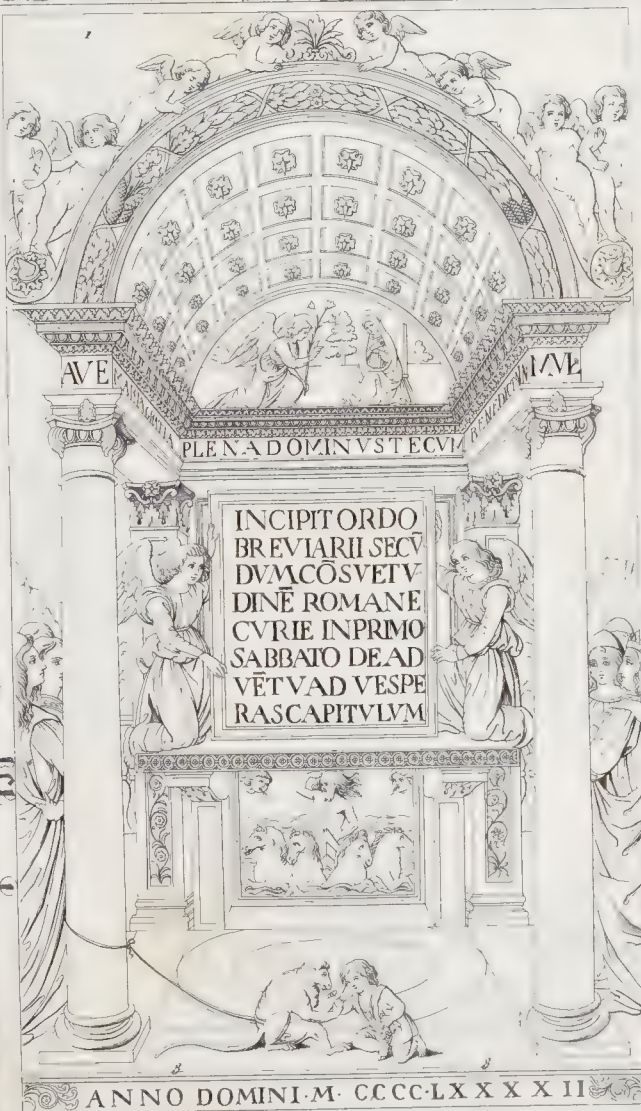 1
AVE
PLENA DOMINVS TECVM
BENEDICTA
MVL
INCIPIT ORDO
BREVIARII SECV̄
DVM CŌSVETV
DINĒ ROMANE
CVRIE IN PRIMO
SABBATO DE AD
VĒTV AD VESPE
RAS CAPITVLVM
ANNO DOMINI·M·CCCC·LXXXXII